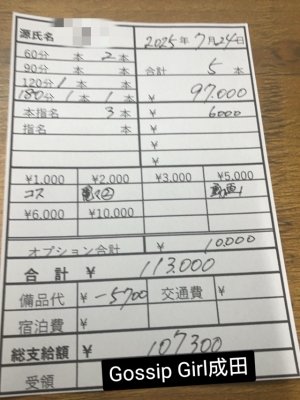 源氏名 2025年7月24日
60分 本 2本
90分 本 本 合計 5本
120分 1本 本 ¥ 97.000
180分 1本 1本
本指名 3本 ¥ 6000
指名 本 ¥
¥
¥
¥1,000 ¥2,000 ¥3,000 ¥5,000
コス
¥6,000 ¥10,000
オプション合計 ¥ 10,000
合計 ¥ 113.000
備品代 ¥ -5700 交通費 ¥
宿泊費 ¥
総支給額 ¥ 107300
受領
Gossip Girl成田